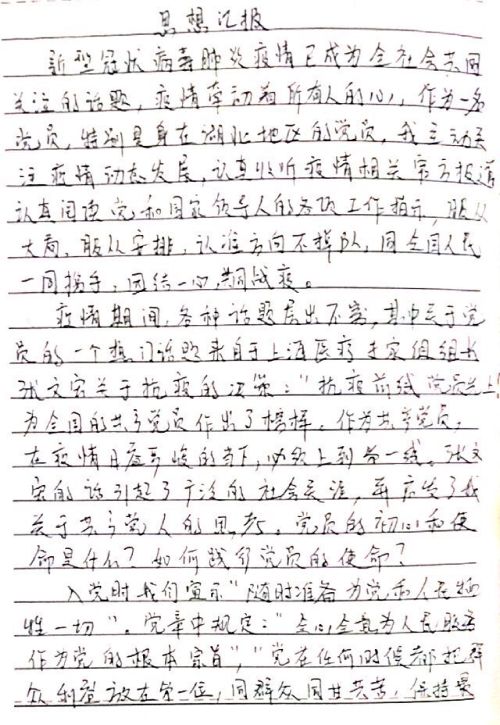 思想汇报
新型冠状病毒肺炎疫情已成为全社会共同
关注的话题，疫情牵动着所有人的心，作为一名
党员，特别是身在湖北地区的党员，我主动关
注疫情动态发展，认真收听疫情相关官方报道
认真阅读党和国家领导人的各项工作指示，服从
大局，服从安排，认准方向不掉队，同全国人民
一同携手，团结一心，共同战疫。
疫情期间，各种话题层出不穷，其中关于党
员的一个热门话题来自于上海医疗专家组组长
张文宏关于抗疫的决策：“抗疫前线党员先上！
为全国的共产党员作出了榜样。作为共产党员，
在疫情日益严峻的当下，必须上到第一线。张文
宏的话引起了广泛的社会关注，再启发了我
关于共产党人的思考。党员的初心和使
命是什么？如何践行党员的使命？
入党时我们宣示“随时准备为党和人民牺
牲一切”。党章中规定：“全心全意为人民服务
作为党的根本宗旨”，“党在任何时候都把群
众利益放在第一位，同群众同甘共苦，保持最